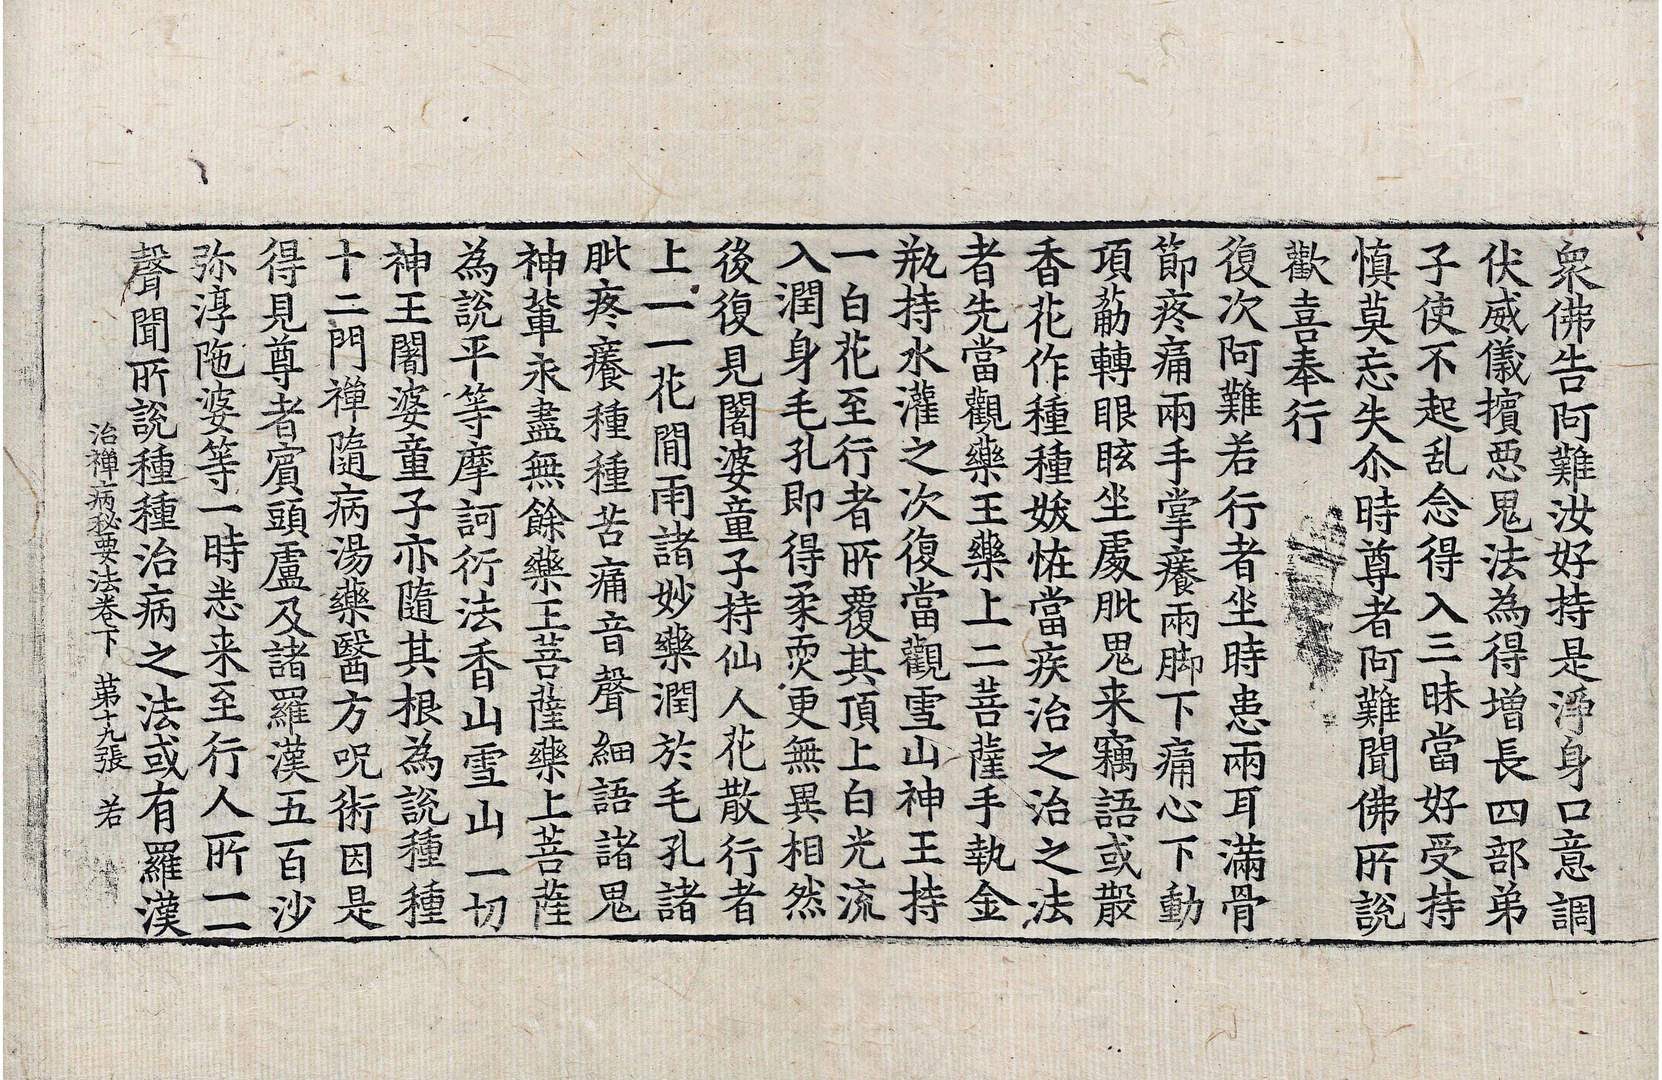 衆佛告阿難汝好持是淨身口意調
伏威儀擯惡鬼法為得增長四部弟
子使不起乱念得入三昧當好受持
慎莫忘失尒時尊者阿難聞佛所說
歡喜奉行
復次阿難若行者坐時患兩耳滿骨
節疼痛兩手掌癢兩脚下痛心下動
項莇轉眼眩坐處𦙶鬼来竊語或散
香花作種種妭恠當疾治之治之法
者先當觀藥王藥上二菩薩手執金
瓶持水灌之次復當觀雪山神王持
一白花至行者所覆其頂上白光流
入潤身毛孔即得柔耎更無異相然
後復見闍婆童子持仙人花散行者
上一一花間雨諸妙藥潤於毛孔諸
𦙶疼癢種種苦痛音聲細語諸鬼
神輩永盡無餘藥王菩薩藥上菩薩
為說平等摩訶衍法香山雪山一切
神王闍婆童子亦隨其根為說種種
十二門禪隨病湯藥醫方呪術因是
得見尊者賓頭盧及諸羅漢五百沙
弥淳陁婆等一時悉来至行人所一一
聲聞所說種種治病之法或有羅漢
治禪病秘要法卷下 苐十九張 若